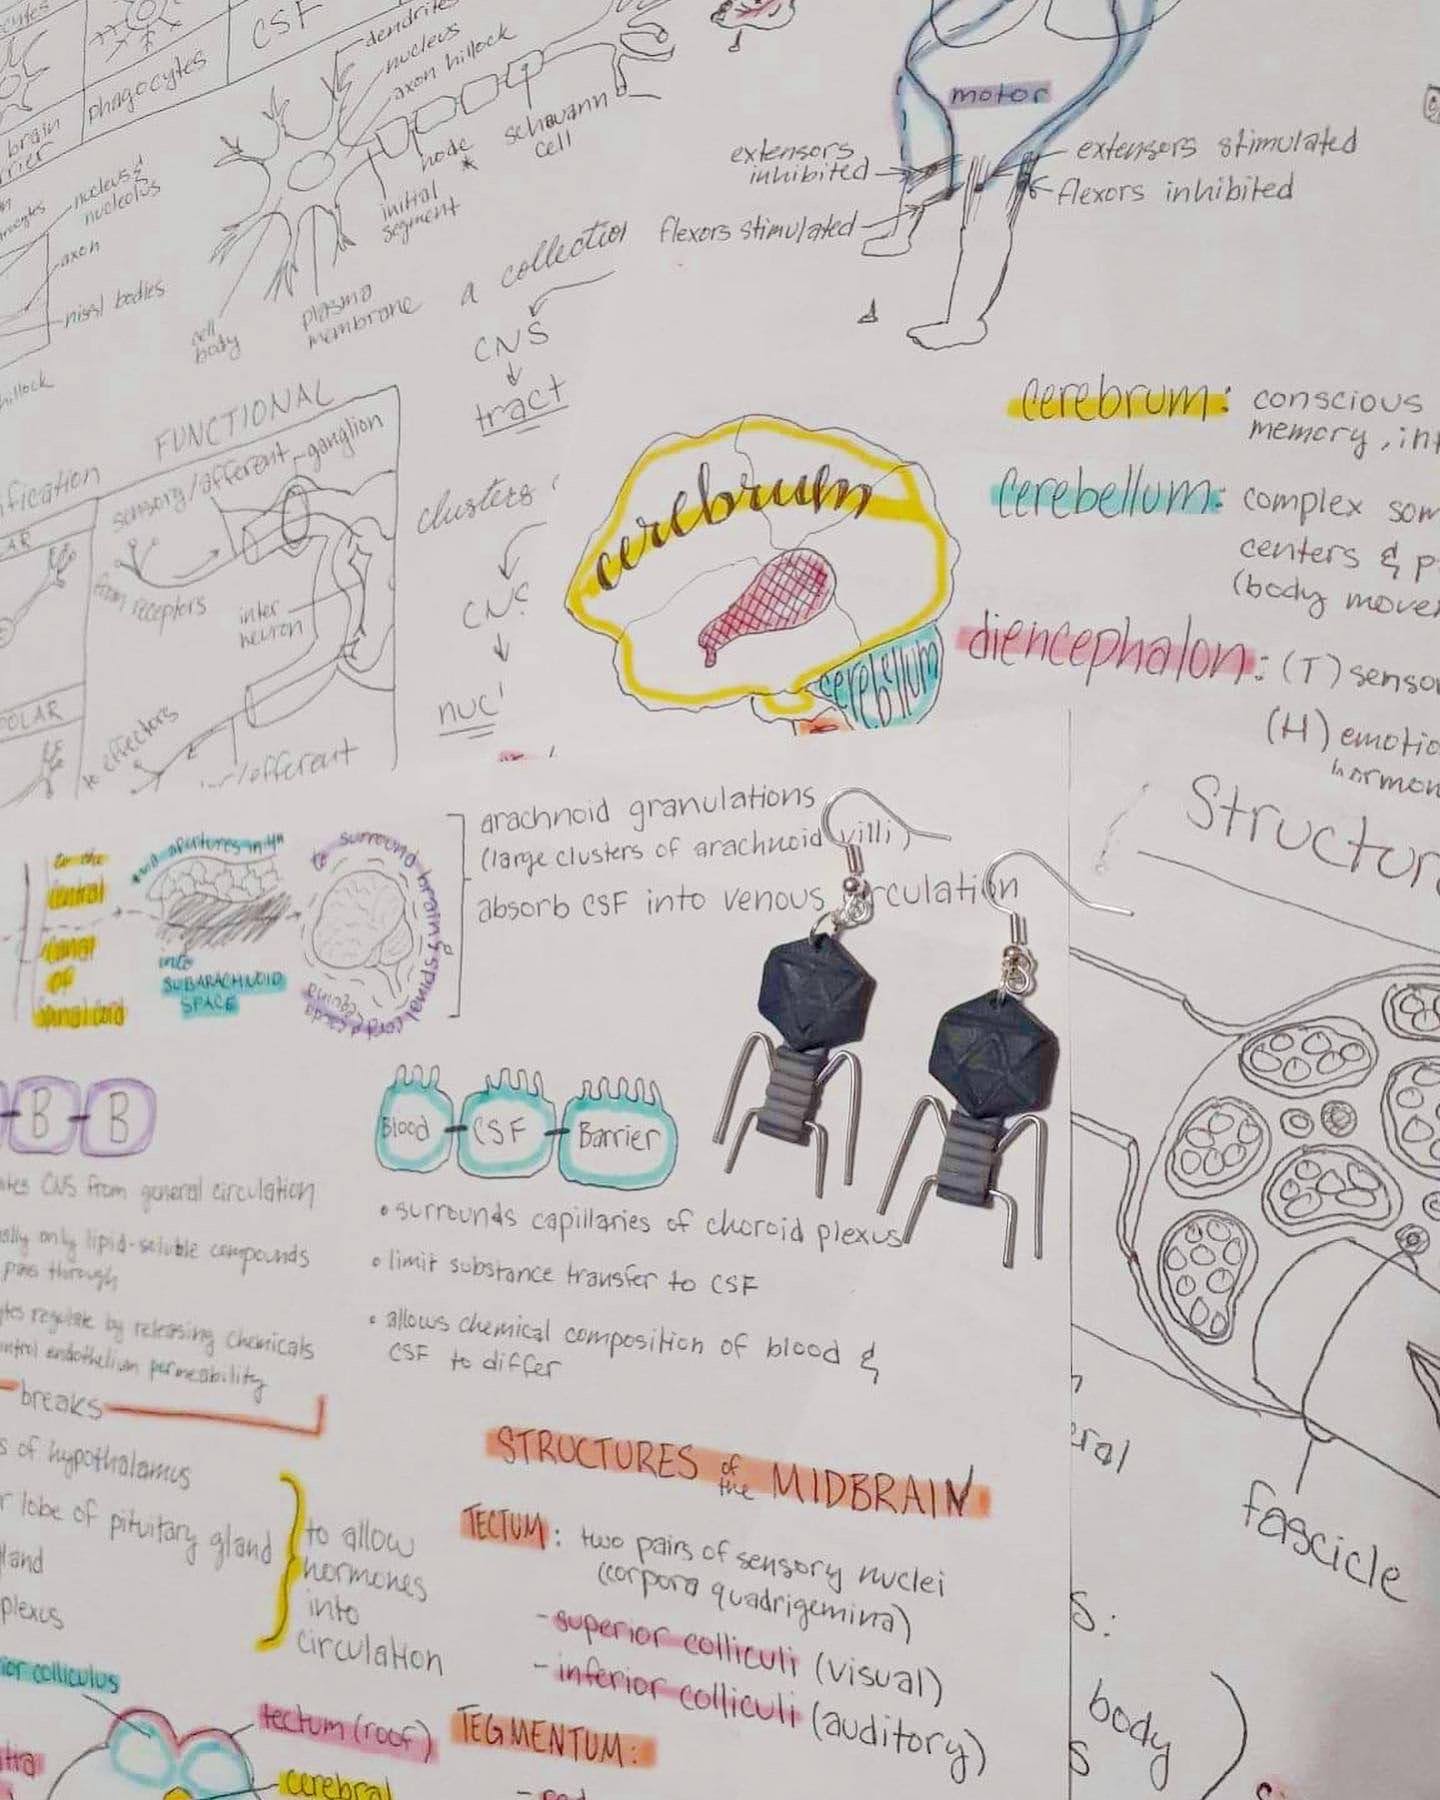 CSF
phagocytes
brain
dendrite
nucleus
axon hillock
node
*
schwann
cell
initial
segment
nucleus &
nucleolus
axon
nissl bodies
cell
body
plasma
membrane
hillock
motor
extensors
inhibited
flexors stimulated
extensors stimulated
flexors inhibited
a collection
CNS
tract
clusters
CNS
FUNCTIONAL
sensory/afferent
ganglion
from receptors
inter
neuron
to effectors
/efferent
cerebrum
cerebellum
cerebrum: conscious
memory, int
cerebellum: complex som
centers & p
(body move
diencephalon: (T) senso
(H) emotio
hormon
arachnoid granulations
(large clusters of arachnoid villi)
absorb CSF into venous circulation
to the
central
canal
of
spinal cord
into
SUBARACHNOID
SPACE
to surround brain & spinal cord
Structur
B - B
Blood - CSF - Barrier
• surrounds capillaries of choroid plexus
• limit substance transfer to CSF
• allows chemical composition of blood &
CSF to differ
CNS from general circulation
only lipid-soluble compounds
pass through
regulate by releasing chemicals
control endothelium permeability
breaks
of hypothalamus
lobe of pituitary gland
land
plexus
to allow
hormones
into
circulation
STRUCTURES of the MIDBRAIN
TECTUM: two pairs of sensory nuclei
(corpora quadrigemina)
- superior colliculi (visual)
- inferior colliculi (auditory)
TEGMENTUM:
- red
colliculus
tectum (roof)
cerebral
fascicle
eral
S:
body
S